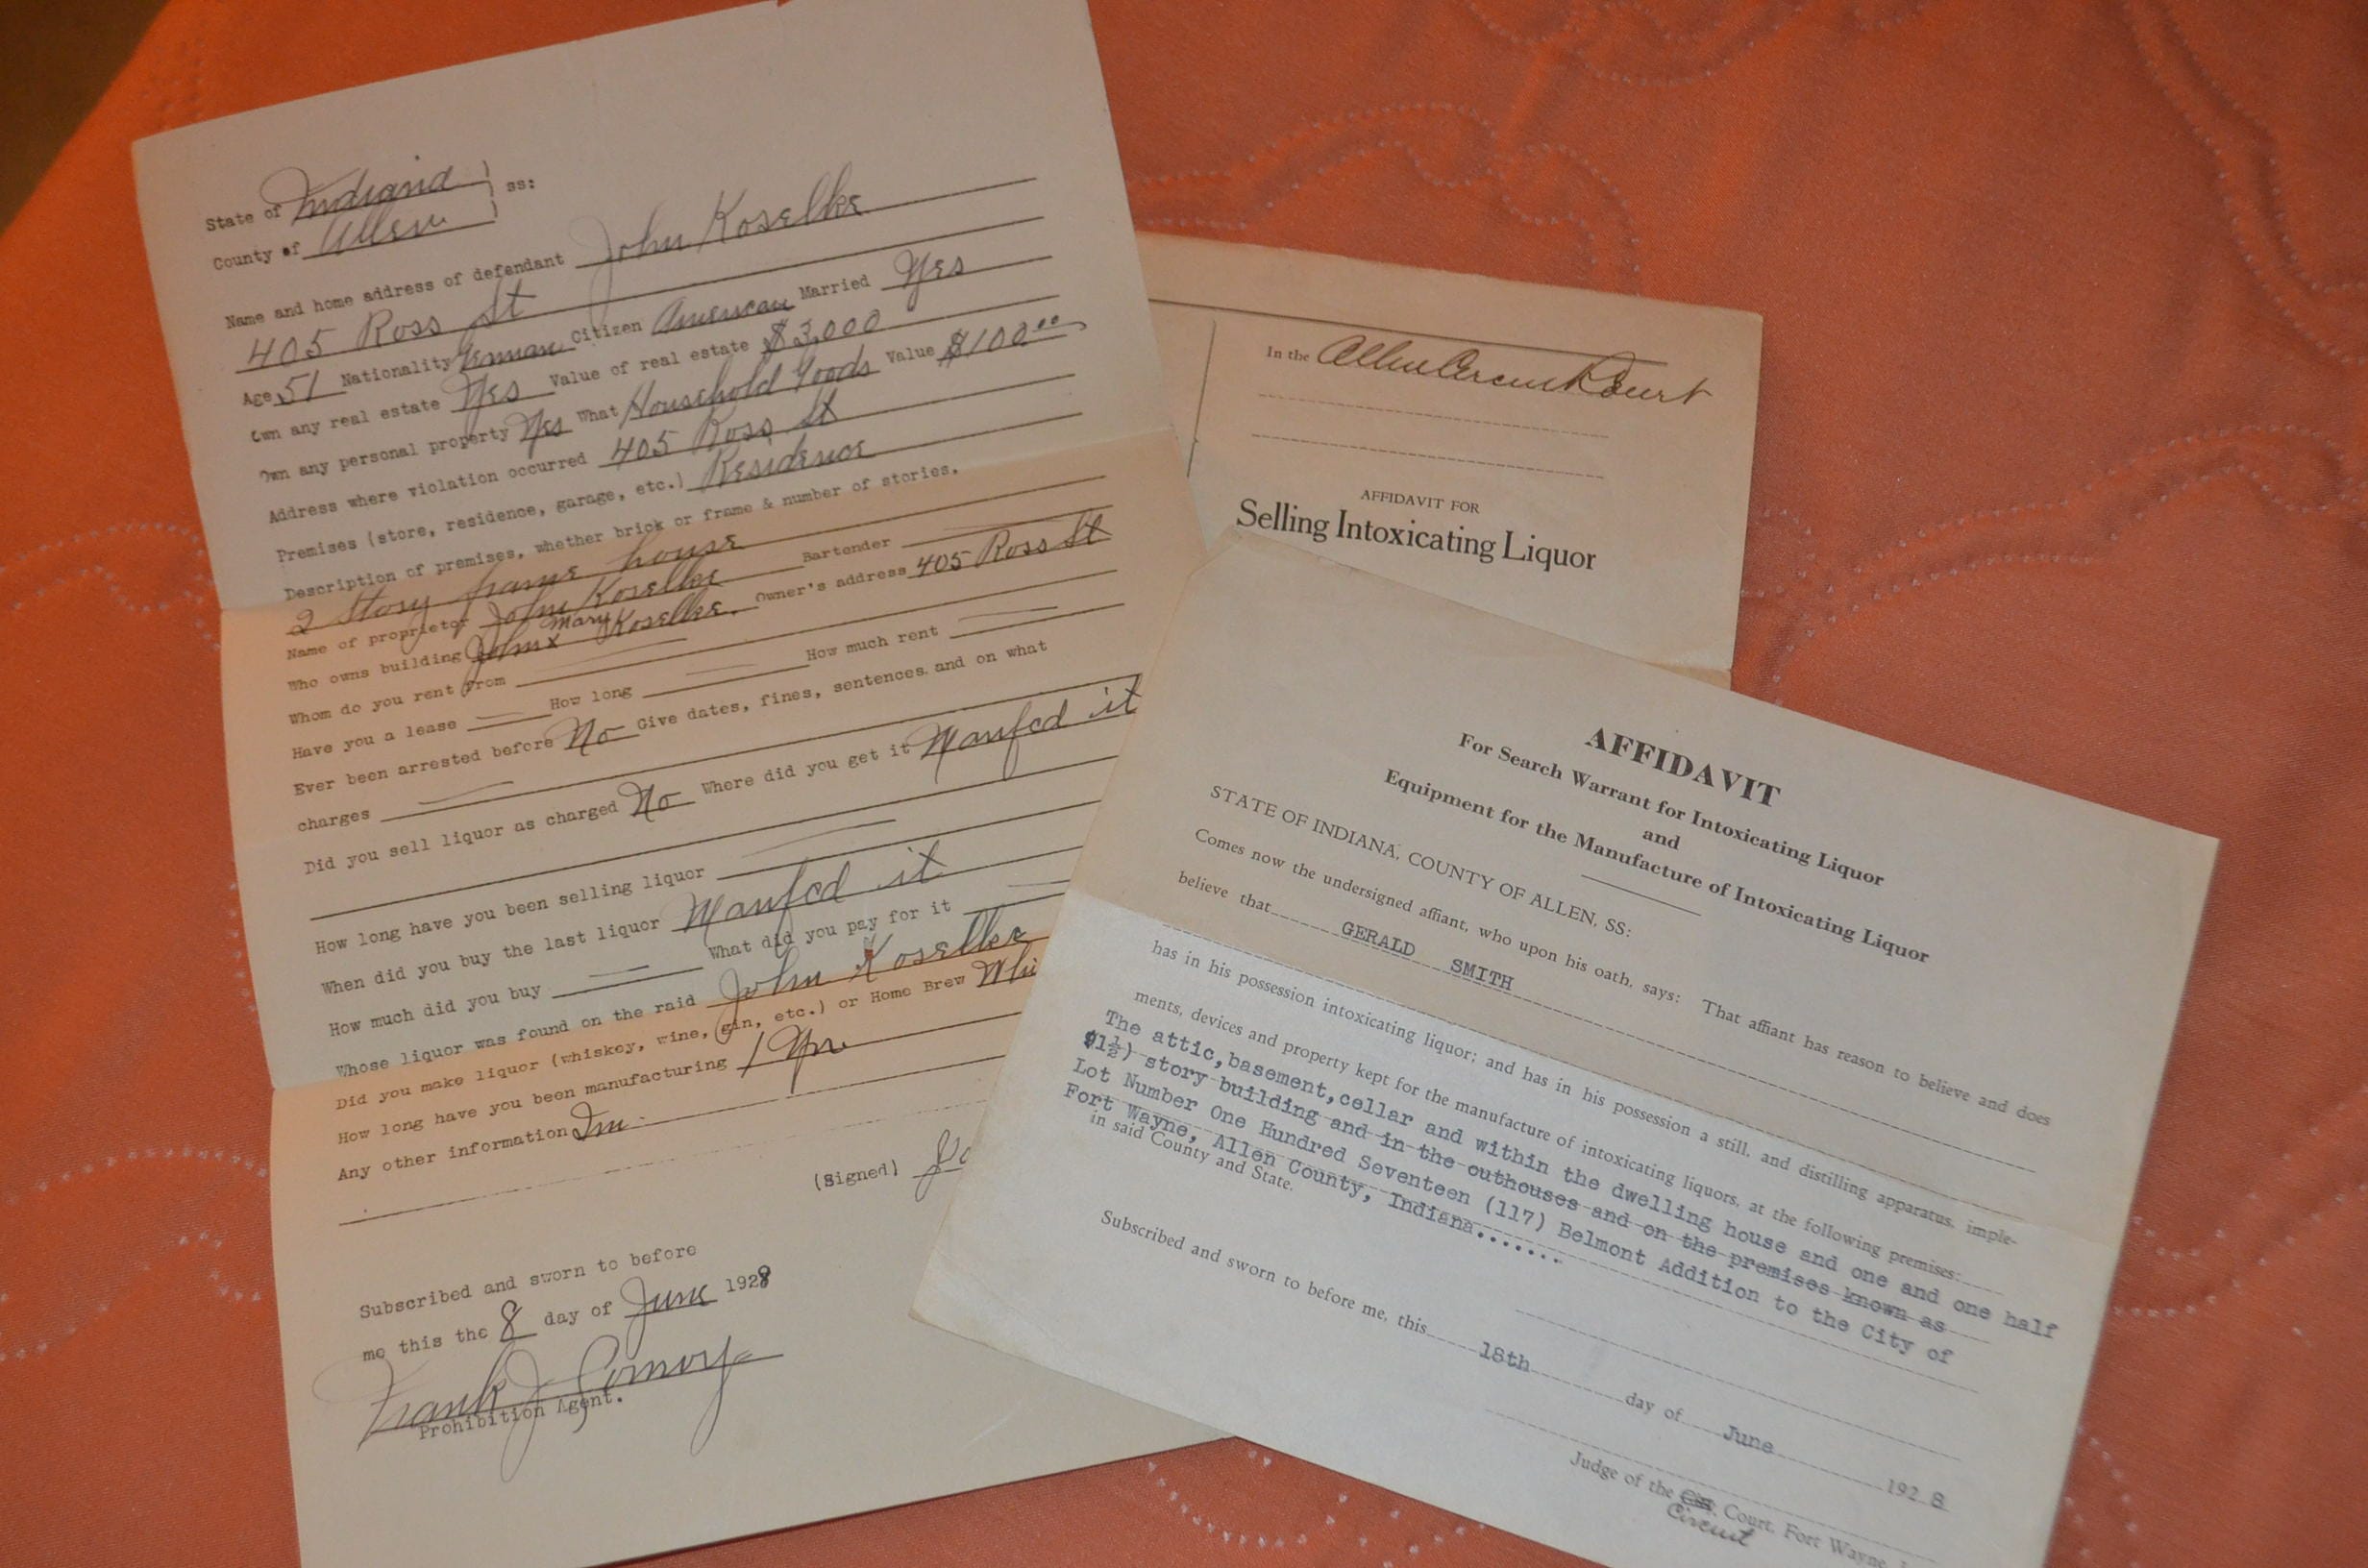 State of Indiana ) ss:
County of Allen
Name and home address of defendant John Koselke
405 Ross St
Age 51 Nationality German Citizen American Married Yes
Own any real estate Yes Value of real estate $3,000
Own any personal property Yes What Household Goods Value $100.00
Address where violation occurred 405 Ross St
Premises (store, residence, garage, etc.) Residence
Description of premises, whether brick or frame & number of stories.
2 Story frame house
Name of proprietor John Koselke Bartender
Who owns building John x Mary Koselke. Owner's address 405 Ross St
Whom do you rent from
Have you a lease How long How much rent
Ever been arrested before No Give dates, fines, sentences and on what
charges
Did you sell liquor as charged No Where did you get it Manfcd it
How long have you been selling liquor
When did you buy the last liquor Manfcd it
How much did you buy What did you pay for it
Whose liquor was found on the raid John Koselke
Did you make liquor (whiskey, wine, gin, etc.) or Home Brew Whi
How long have you been manufacturing 1 Yr.
Any other information
(Signed) Jo
Subscribed and sworn to before
me this the 8 day of June 1928
Frank J Conroy
Prohibition Agent.
In the Allen Circuit Court
AFFIDAVIT FOR
Selling Intoxicating Liquor
AFFIDAVIT
For Search Warrant for Intoxicating Liquor
and
Equipment for the Manufacture of Intoxicating Liquor
STATE OF INDIANA, COUNTY OF ALLEN, SS:
Comes now the undersigned affiant, who upon his oath, says: That affiant has reason to believe and does
believe that GERALD SMITH
has in his possession intoxicating liquor; and has in his possession a still, and distilling apparatus, imple-
ments, devices and property kept for the manufacture of intoxicating liquors, at the following premises:
The attic, basement, cellar and within the dwelling house and one and one half
$1½) story building and in the outhouses and on the premises known as
Lot Number One Hundred Seventeen (117) Belmont Addition to the City of
Fort Wayne, Allen County, Indiana.......
in said County and State.
Subscribed and sworn to before me, this 18th day of June 1928
Judge of the Court, Fort Wayne,
Circuit